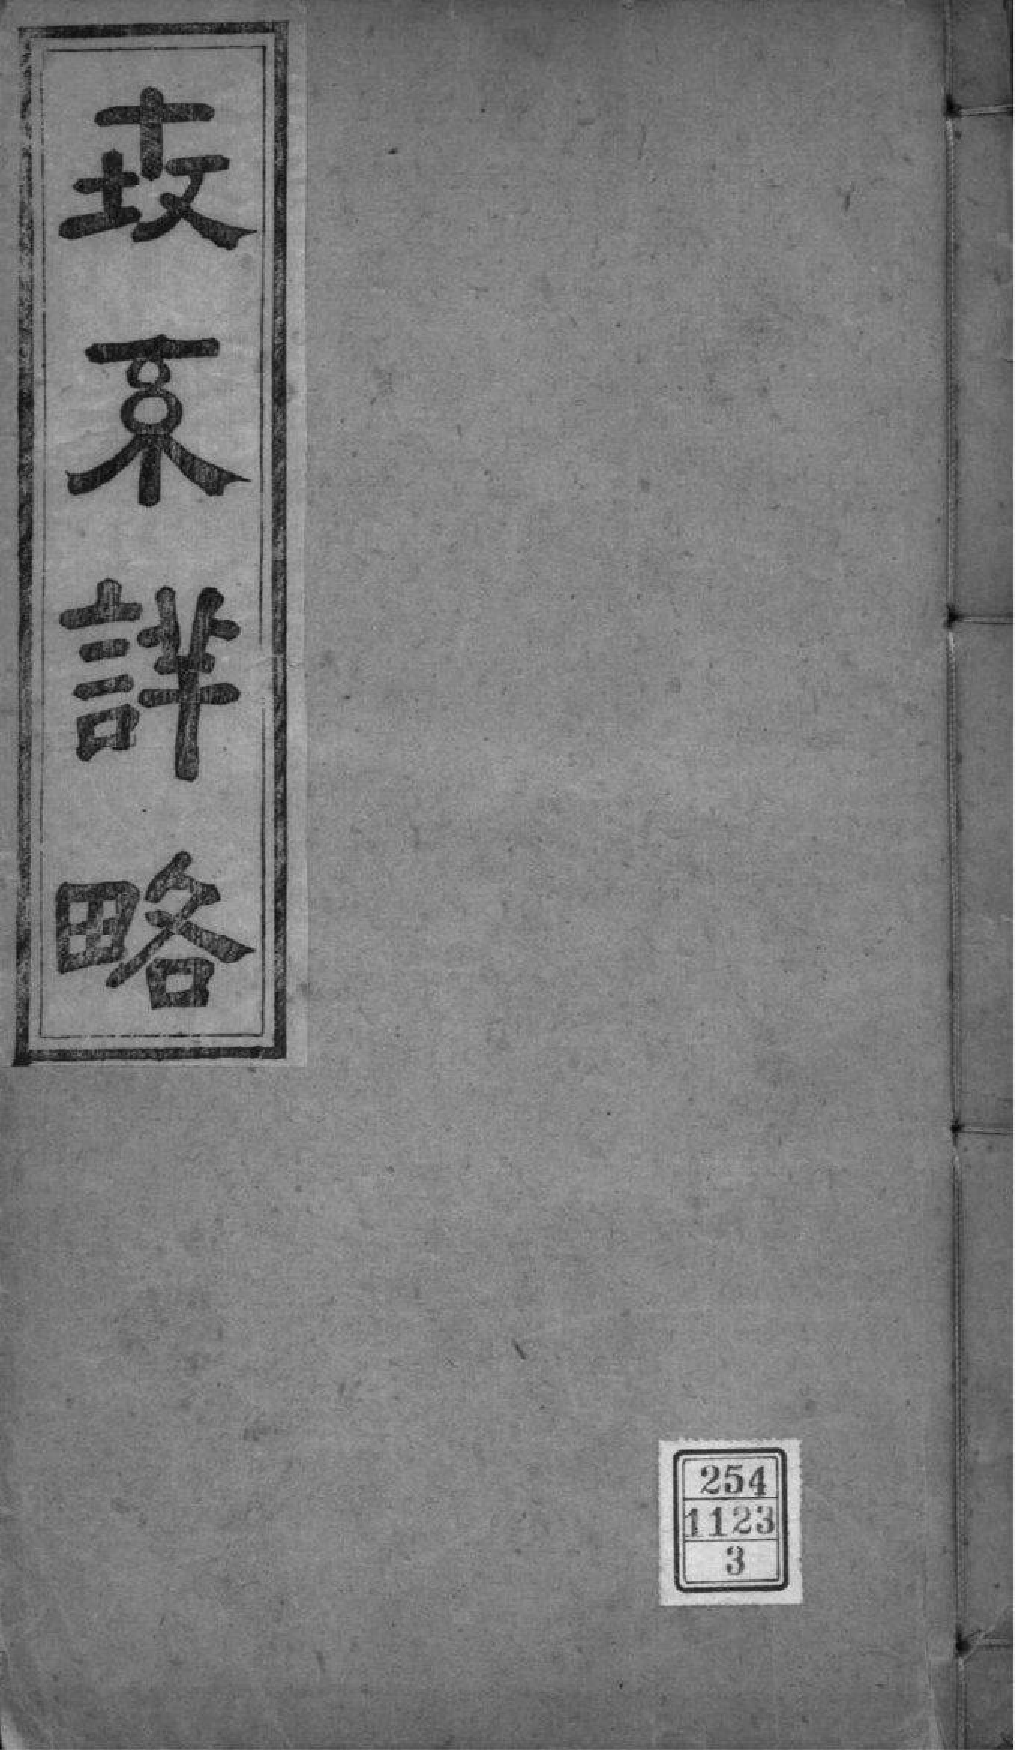 系詳略
254
1123
3